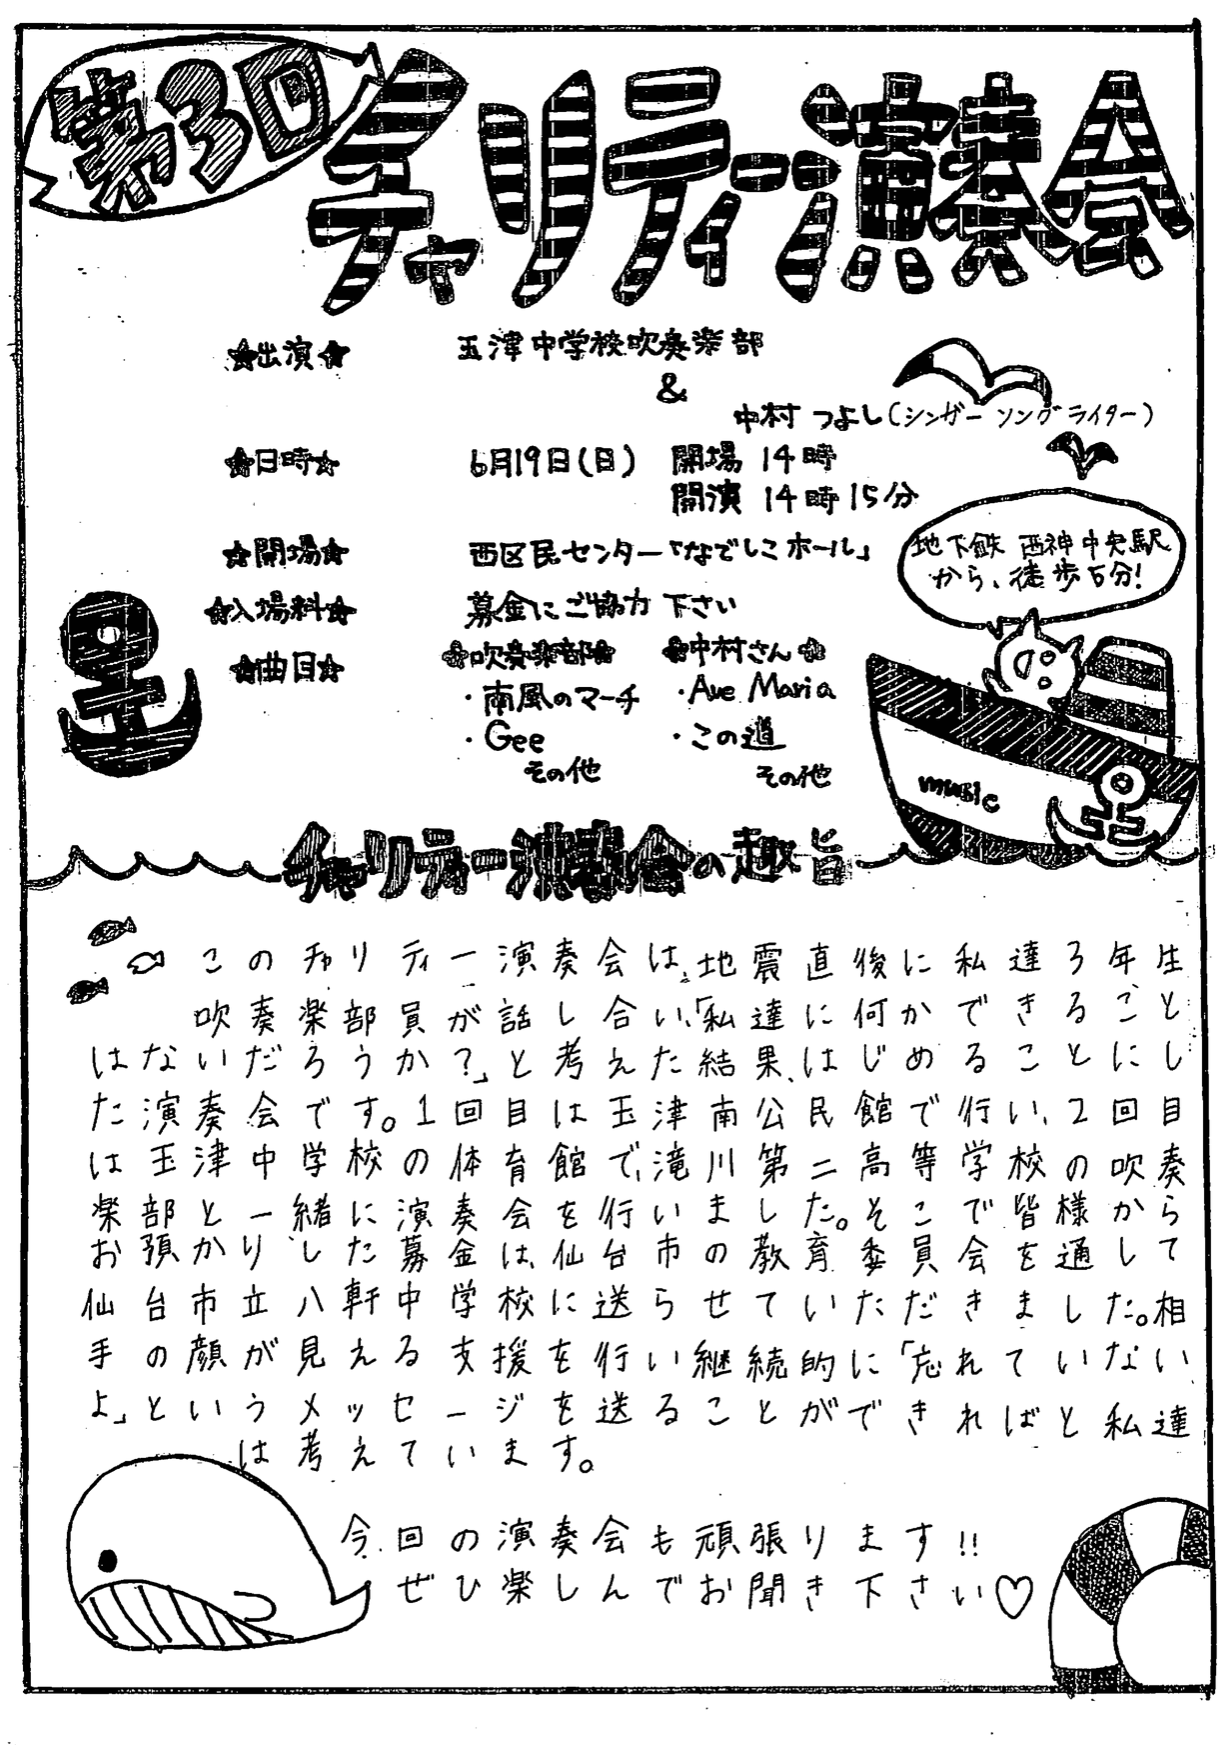 第3回
チャリティー演奏会
☆出演☆ 玉津中学校吹奏楽部
&
中村 つよし(シンガーソングライター)
☆日時☆ 6月19日(日) 開場 14時
開演 14時15分
☆開場☆ 西区民センター「なでしこホール」
地下鉄 西神中央駅
から、徒歩5分!
☆入場料☆ 募金にご協力 下さい
☆曲目☆ ☆吹奏楽部☆ ☆中村さん☆
・南風のマーチ ・Ave Maria
・Gee ・この道
その他 その他
music
チャリティー演奏会の趣旨
このチャリティー演奏会は、地震直後に私達3年生
吹奏楽部員が話し合い、「私達に何かできること
はないだろうか?」と考えた結果、はじめることにし
た演奏会です。1回目は玉津南公民館で行い、2回目
は玉津中学校の体育館で、滝川第二高等学校の吹奏
楽部と一緒に演奏会を行いました。そこで皆様から
お預かりした募金は、仙台市の教育委員会を通して
仙台市立八軒中学校に送らせていただきました。相
手の顔が見える支援を行い継続的に「忘れていない
よ」というメッセージを送ることができればと私達
は考えています。
今回の演奏会も頑張ります!!
ぜひ楽しんでお聞き下さい♡